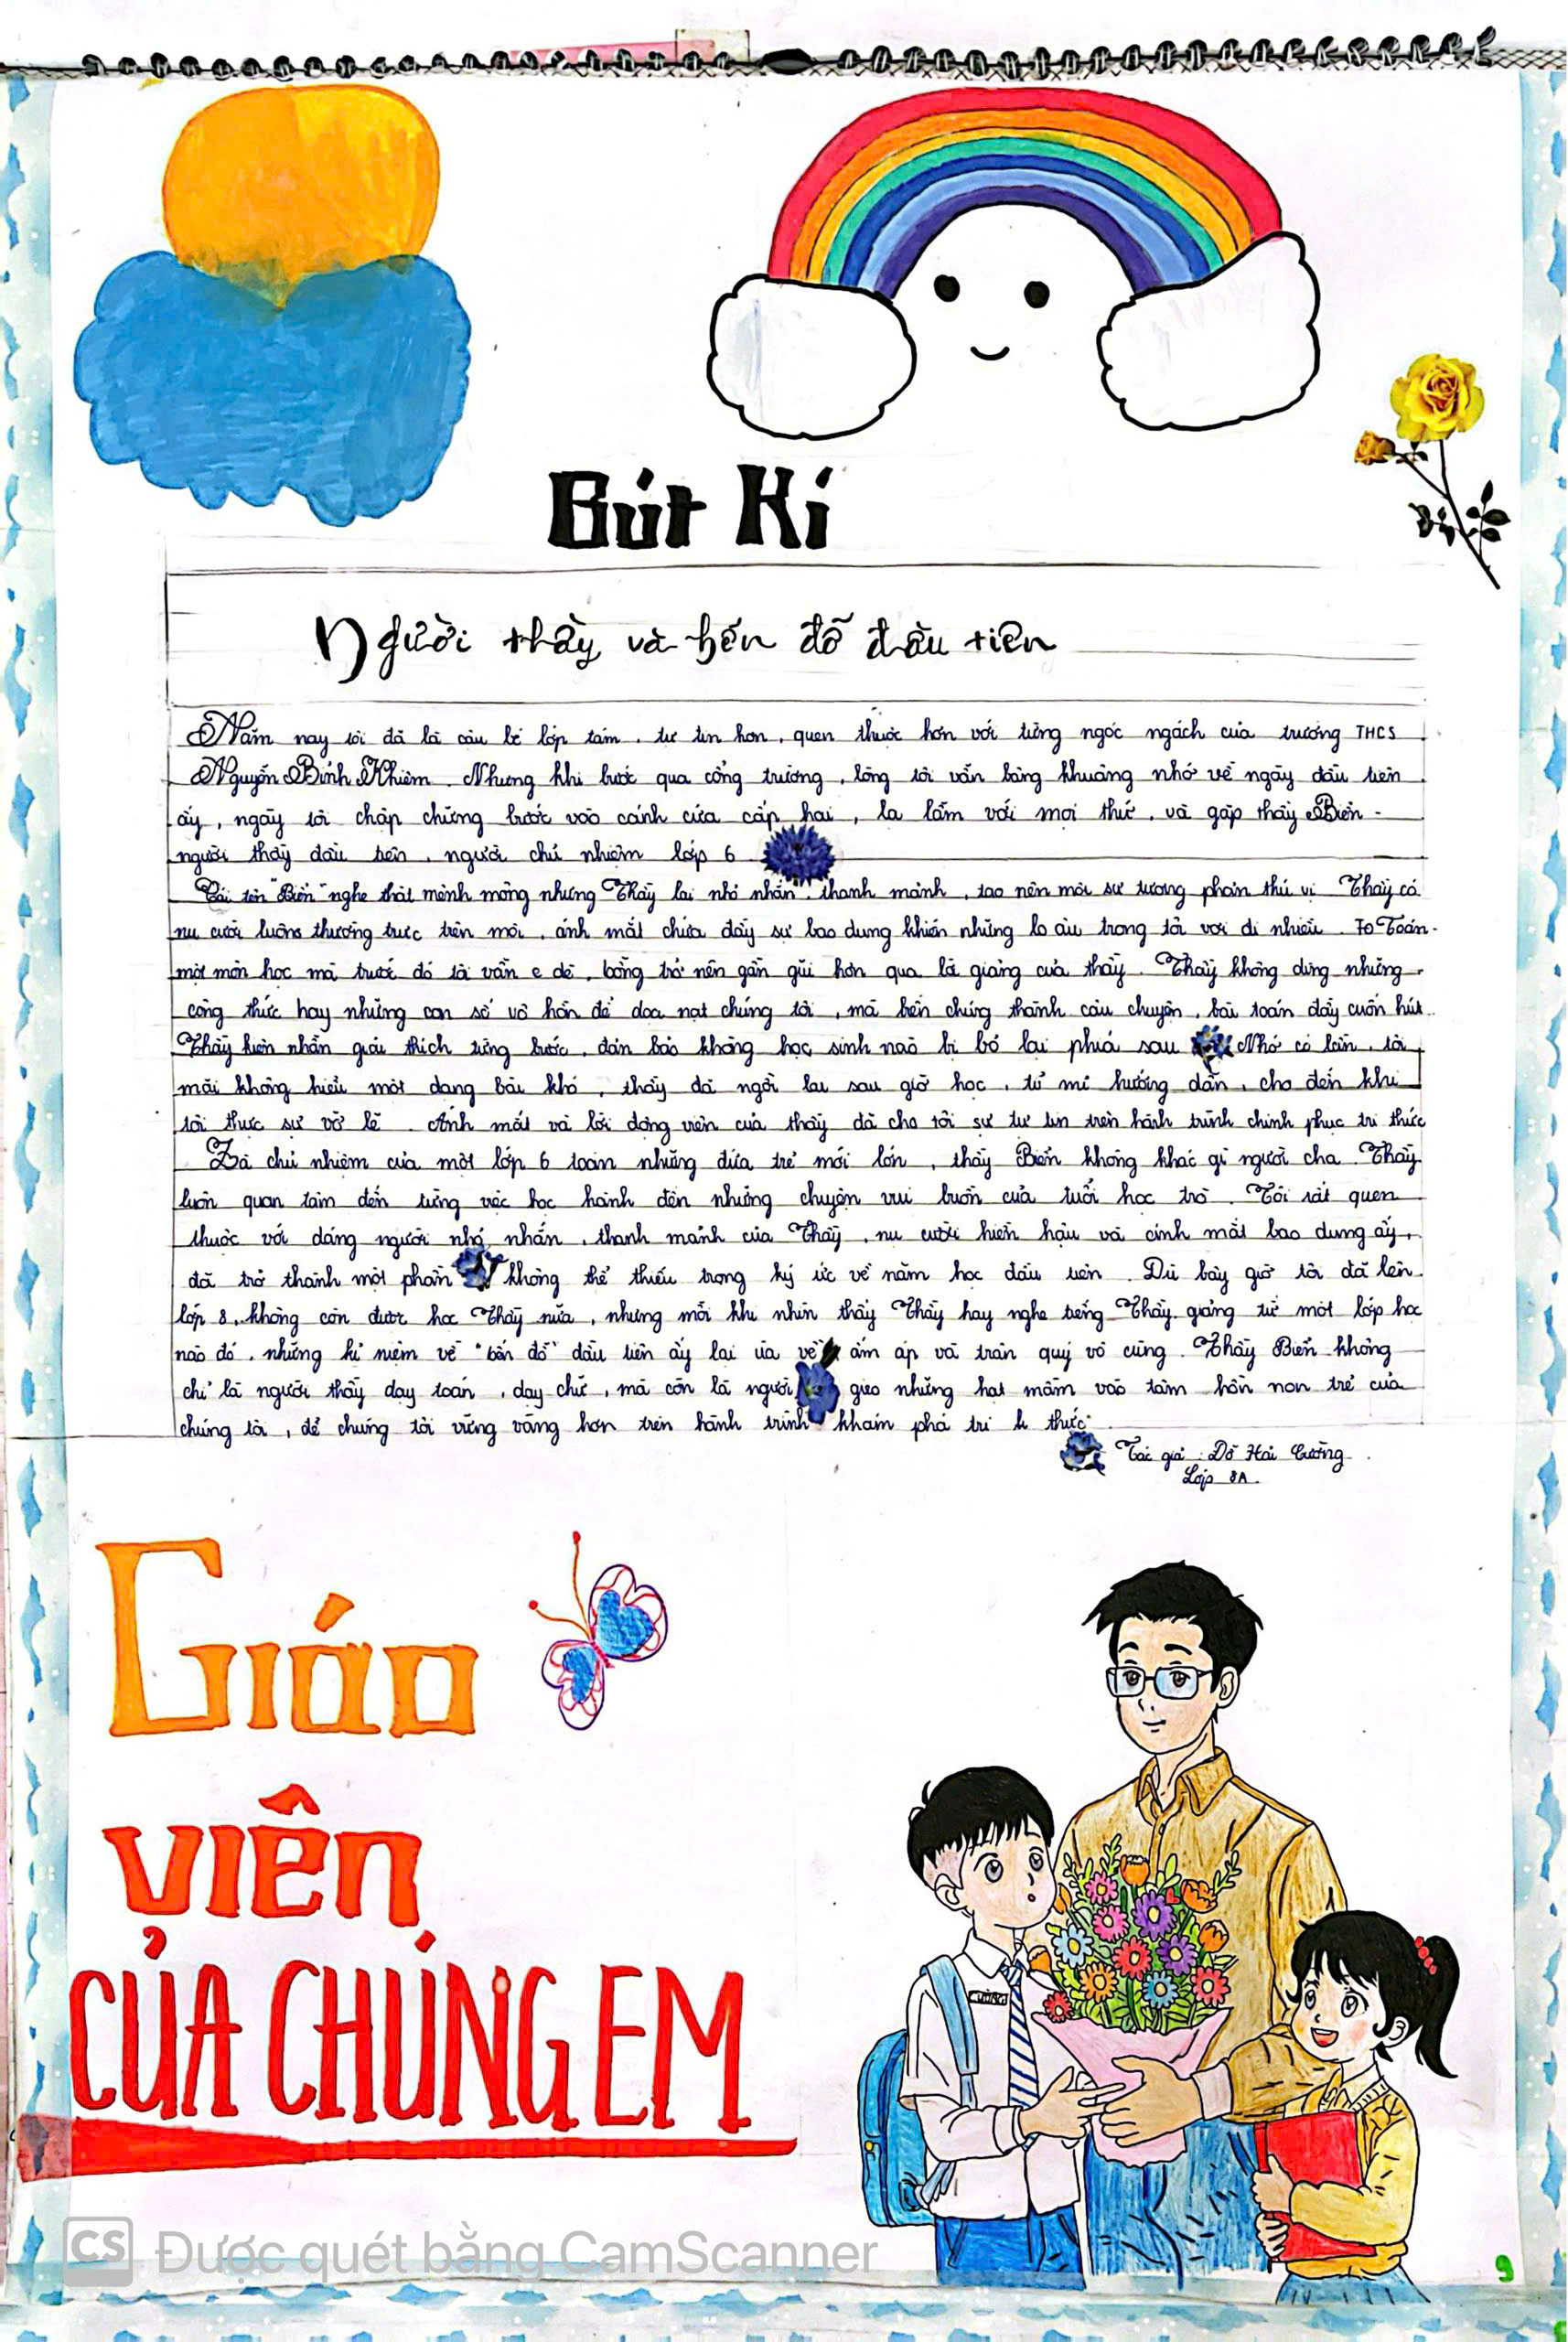 Bút Kí
Người thầy và bến đỗ đầu tiên
Năm nay tôi đã là cậu bé lớp tám, tự tin hơn, quen thuộc hơn với từng ngóc ngách của trương THCS
Nguyễn Bỉnh Khiêm. Nhưng khi bước qua cổng trường, lòng tôi vẫn bâng khuâng nhớ về ngày đầu tiên
ấy, ngày tôi chập chững bước vào cánh cửa cấp hai, lạ lẫm với mọi thứ, và gặp thầy Biển -
người thầy đầu tiên, người chủ nhiệm lớp 6
Cái tên "Biển" nghe thật mênh mông nhưng Thầy lại nhỏ nhắn, thanh mảnh, tạo nên một sự tương phản thú vị. Thầy có
nụ cười luôn thường trực trên môi, ánh mắt chứa đầy sự bao dung khiến những lo âu trong tôi vơi đi nhiều. Toán -
một môn học mà trước đó tôi vẫn e dè, bỗng trở nên gần gũi hơn qua lời giảng của thầy. Thầy không dùng những
công thức hay những con số vô hồn để doạ nạt chúng tôi, mà biến chúng thành câu chuyện, bài toán đầy cuốn hút.
Thầy kiên nhẫn giải thích từng bước, đảm bảo không học sinh nào bị bỏ lại phía sau. Nhớ có lần, tôi
mãi không hiểu một dạng bài khó, thầy đã ngồi lại sau giờ học, tỉ mỉ hướng dẫn, cho đến khi
tôi thực sự vỡ lẽ. Ánh mắt và lời động viên của thầy đã cho tôi sự tự tin trên hành trình chinh phục tri thức
Là chủ nhiệm của một lớp 6 toàn những đứa trẻ mới lớn, thầy Biển không khác gì người cha. Thầy
luôn quan tâm đến từng việc học hành đến những chuyện vui buồn của tuổi học trò. Tôi rất quen
thuộc với dáng người nhỏ nhắn, thanh mảnh của Thầy, nụ cười hiền hậu và ánh mắt bao dung ấy,
đã trở thành một phần không thể thiếu trong ký ức về năm học đầu tiên. Dù bây giờ tôi đã lên
lớp 8, không còn được học Thầy nữa, nhưng mỗi khi nhìn thấy Thầy hay nghe tiếng Thầy giảng từ một lớp học
nào đó, những kỉ niệm về "bến đỗ" đầu tiên ấy lại ùa về ấm áp và trân quý vô cùng. Thầy Biển không
chỉ là người thầy dạy toán, dạy chữ, mà còn là người gieo những hạt mầm vào tâm hồn non trẻ của
chúng tôi, để chúng tôi vững vàng hơn trên hành trình khám phá tri thức.
Tác giả: Đỗ Hải Cường
Lớp 8A.
Giáo
viên
CỦA CHÚNG EM
CƯỜNG
CS Được quét bằng CamScanner
9